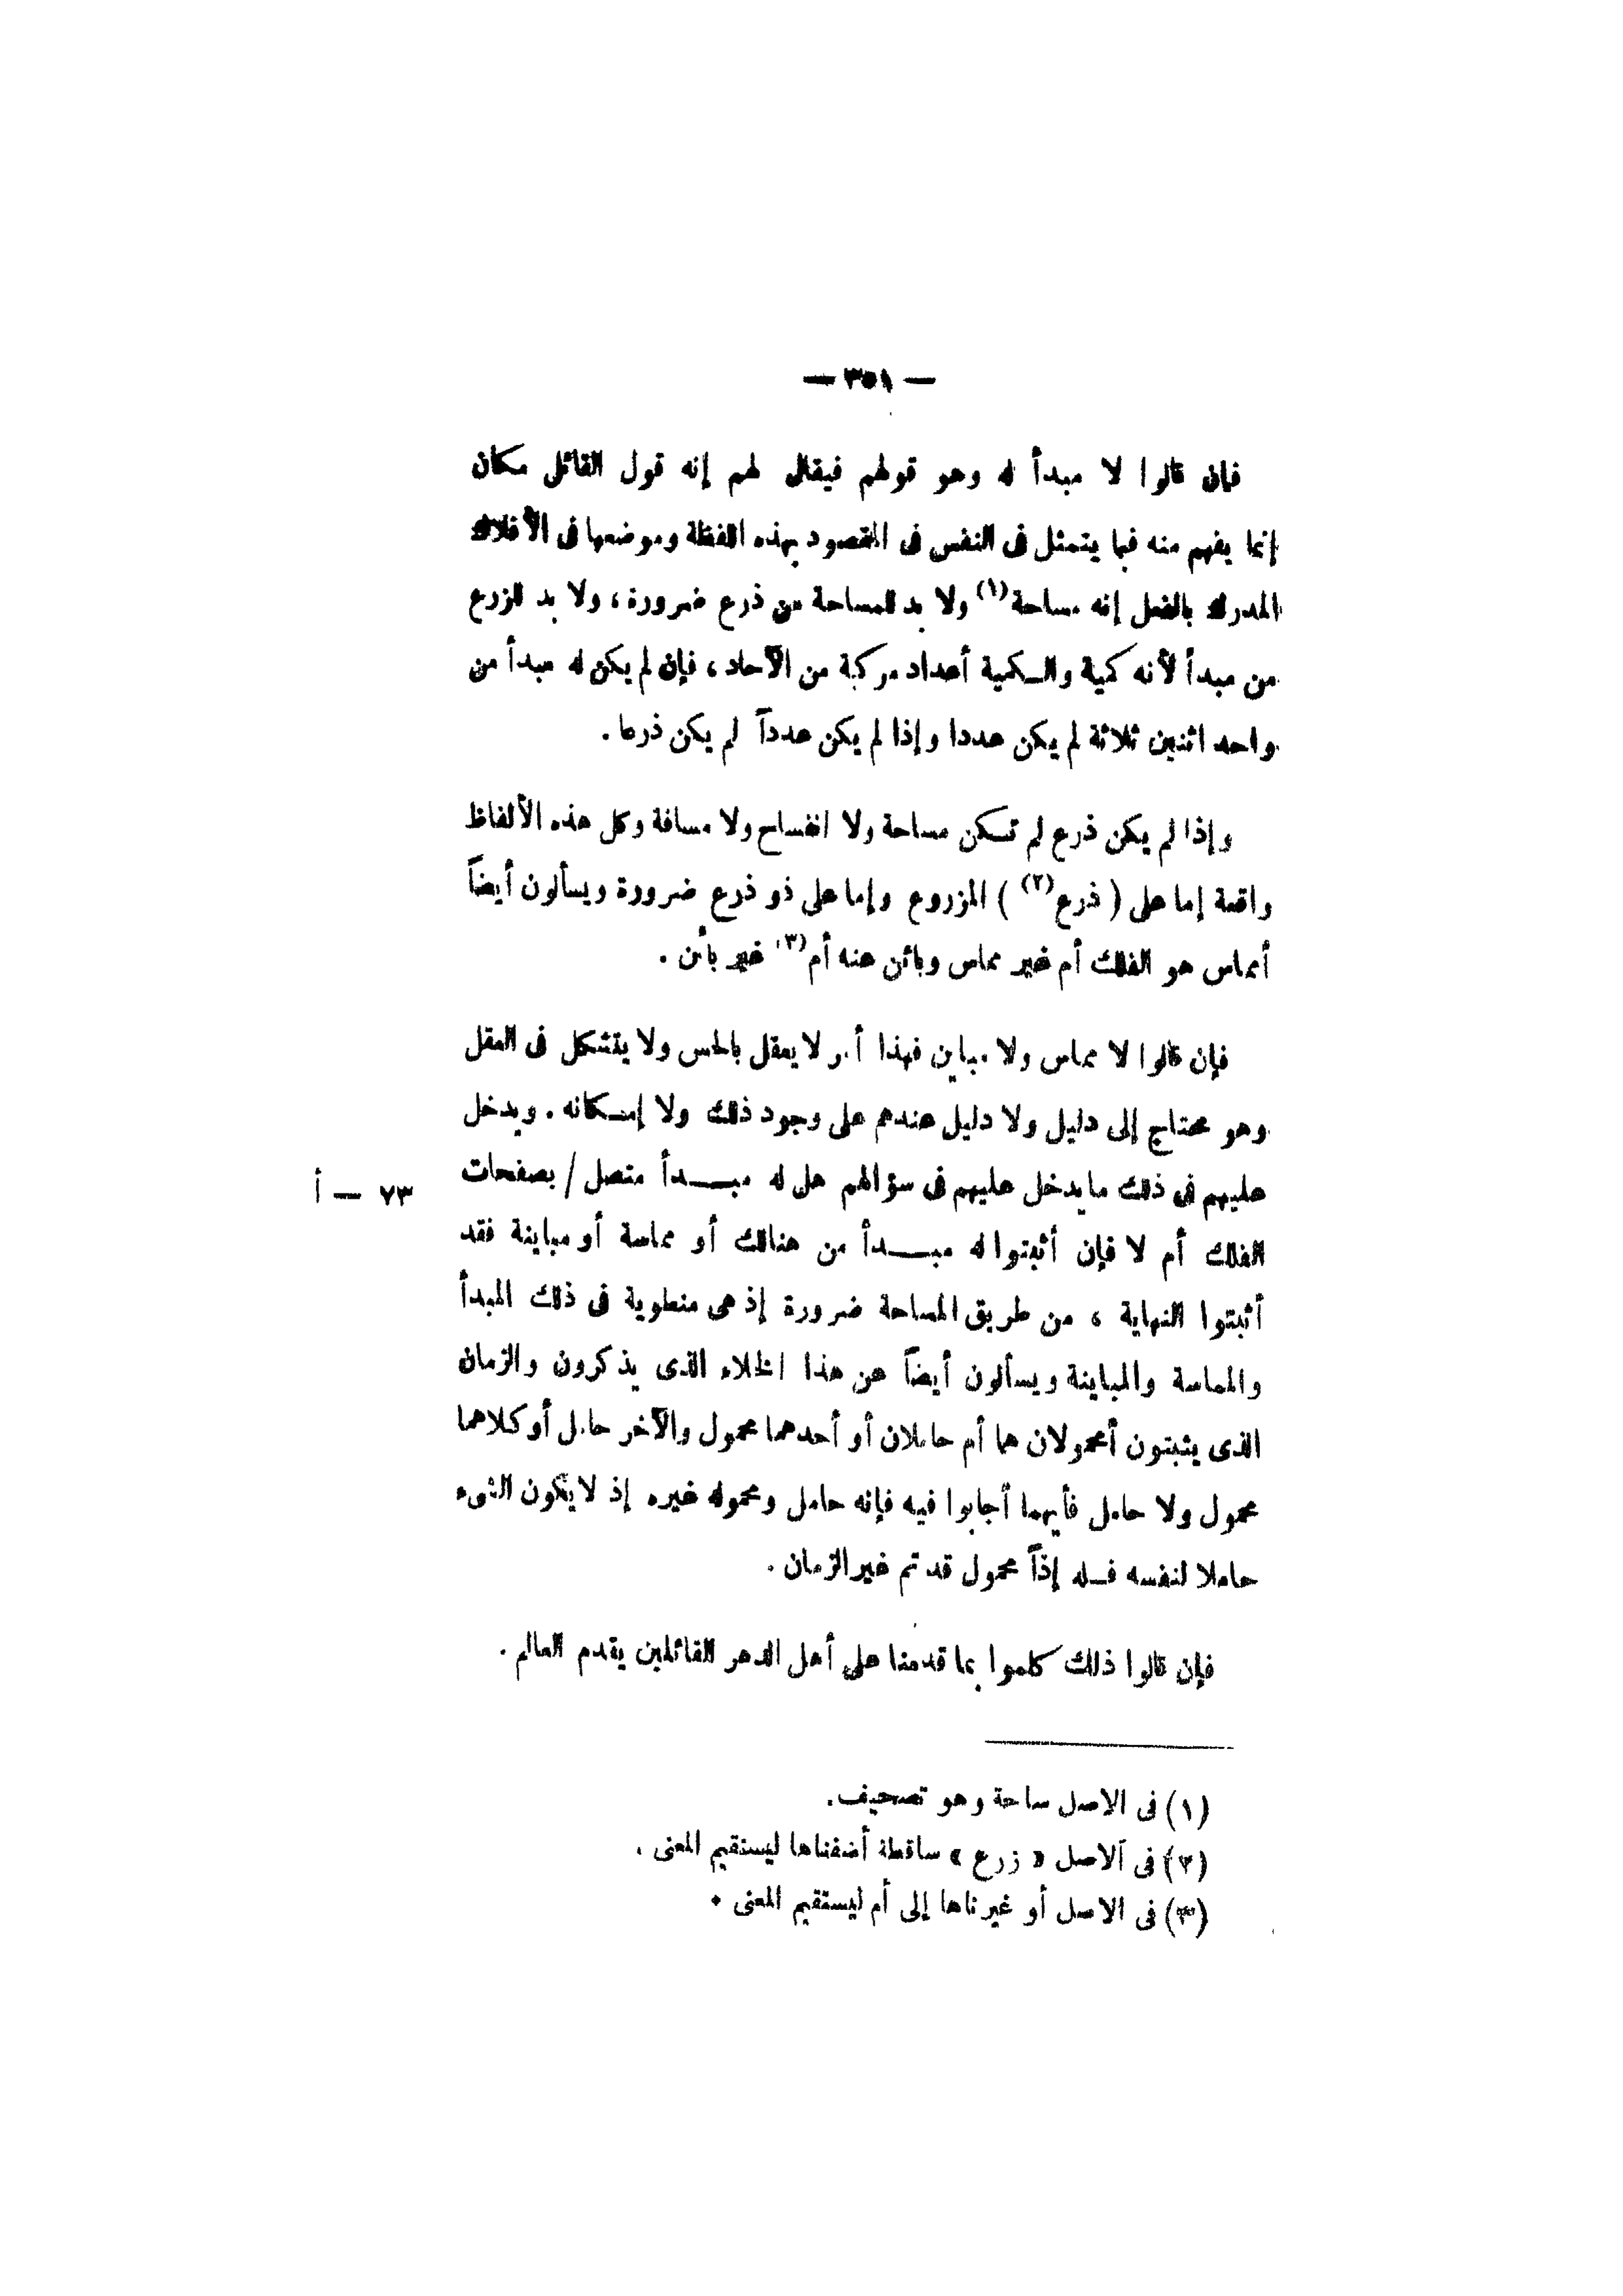 — ٣٥١ —
فإن قالوا لا مبدأ له وهو قولهم فيقال لهم إنه قول القائل مكان
إنما يفهم منه فيما يتمثل فى النفس فى المقصود بهذه اللفظة وموضعها فى الأفلاك
المدرك بالفعل إنه مساحة(١) ولا بد للمساحة من ذرع ضرورة ، ولا بد للزرع
من مبدأ لأنه كمية والكمية أعداد مركبة من الآحاد ، فإن لم يكن له مبدأ من
واحد اثنين ثلاثة لم يكن عددا وإذا لم يكن عدداً لم يكن ذرعا .
وإذا لم يكن ذرع لم تكن مساحة ولا انفساح ولا مسافة وكل هذه الألفاظ
واقعة إما على ( ذرع(٢) ) المزروع وإما على ذو ذرع ضرورة ويسألون أيضاً
أمماس هو الفلك أم غير مماس وبائن عنه أم(٣) غير بائن .
فإن قالوا لا مماس ولا مباين فهذا أمر لا يعقل بالحس ولا يتشكل فى العقل
وهو محتاج إلى دليل ولا دليل عندهم على وجود ذلك ولا إمكانه . ويدخل
عليهم فى ذلك ما يدخل عليهم فى سؤالهم هل له مبدأ متصل / بصفحات
٧٣ — أ
الفلك أم لا فإن أثبتوا له مبدأ من هنالك أو مماسة أو مباينة فقد
أثبتوا النهاية ، من طريق المساحة ضرورة إذ هى منطوية فى ذلك المبدأ
والمماسة والمباينة ويسألون أيضاً عن هذا الخلاء الذى يذكرون والزمان
الذى يثبتون أمحمولان هما أم حاملان أو أحدهما محمول والآخر حامل أو كلاهما
محمول ولا حامل فأيهما أجابوا فيه فإنه حامل ومحموله غيره إذ لا يكون الشىء
حاملا لنفسه فله إذاً محمول قد تم غير الزمان .
فإن قالوا ذلك كلموا بما قدمنا على أهل الدهر القائلين يقدم العالم .
(١) فى الاصل ساحة وهو تصحيف.
(٢) فى الاصل « زرع » ساقطة أضفناها ليستقيم المعنى .
(٣) فى الاصل أو غيرناها إلى أم ليستقيم المعنى .